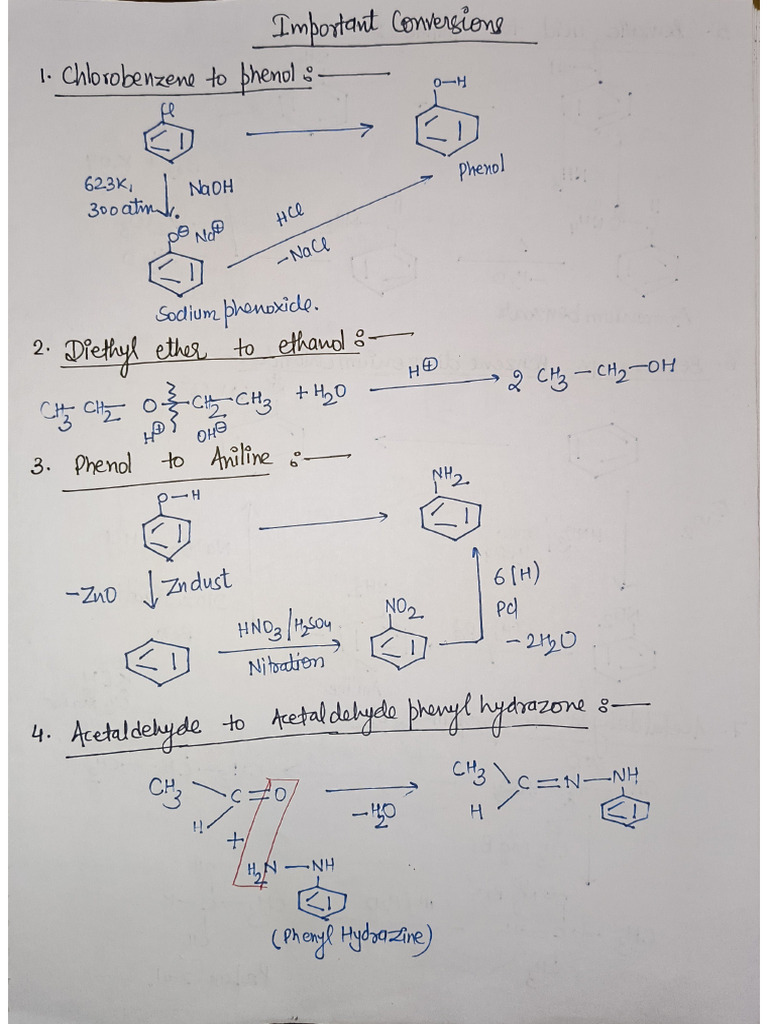 Important Conversions
1. Chlorobenzene to phenol :—
Cl
O—H
Phenol
623K,
300 atm
NaOH
O⊖ Na⊕
HCl
–NaCl
Sodium phenoxide.
2. Diethyl ether to ethanol :—
CH3–CH2– O–CH2–CH3 + H2O
H⊕
2 CH3–CH2–OH
H⊕ OH⊖
3. Phenol to Aniline :—
O—H
NH2
–ZnO
Zn dust
HNO3/H2SO4
Nitration
NO2
6(H)
Pd
–2H2O
4. Acetaldehyde to Acetaldehyde phenyl hydrazone :—
CH3
C=O
H
+
–H2O
CH3
C=N—NH
H
H2N—NH
(Phenyl Hydrazine)